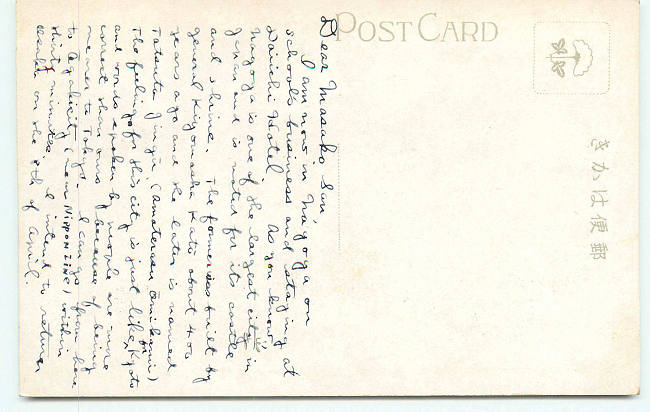 POST CARD
きかは便郵
Dear Masako San,
I am now in Nagoya on
school's business and staying at
Daiichi Hotel. As you know,
Nagoya is one of the largest city in
and is noted for its castle
and shrine. The former was built by
general Kiyomasha Kato about 400
years ago and the later is named
Jingu, (Amaterasu Omikami)
The feelings for this city is just like for Kyoto
and words spoken by people are more
correct than ours because of being
nearer to Tokyo. I can go from here
to city ( NIPPON LINE) within
thirty minutes. I intend to return
on the 8th of April.